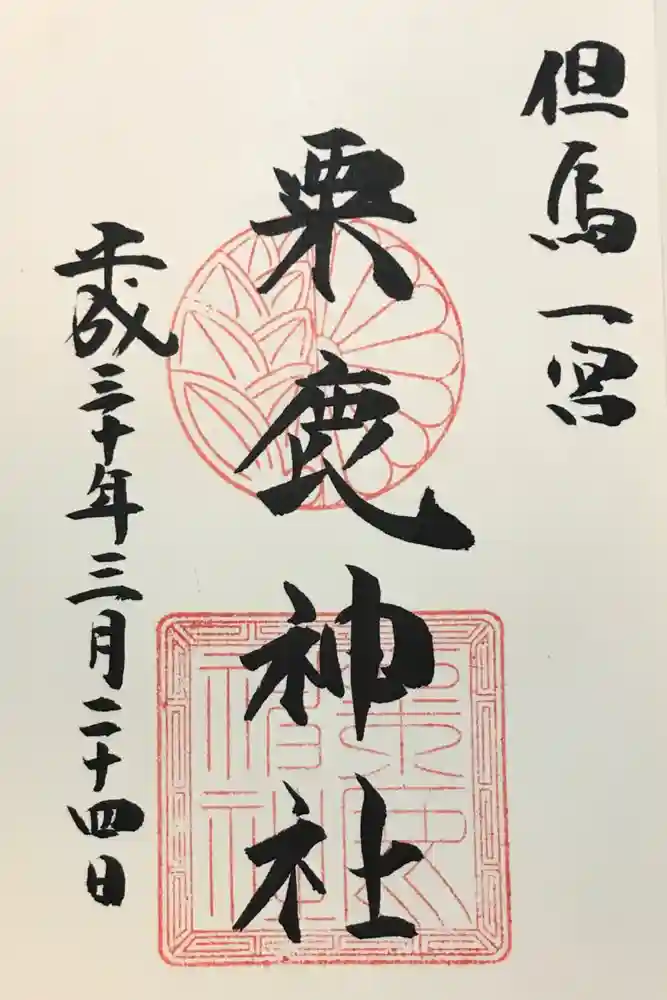 但馬一宮
粟鹿神社
平成三十年三月二十四日
粟鹿
神社